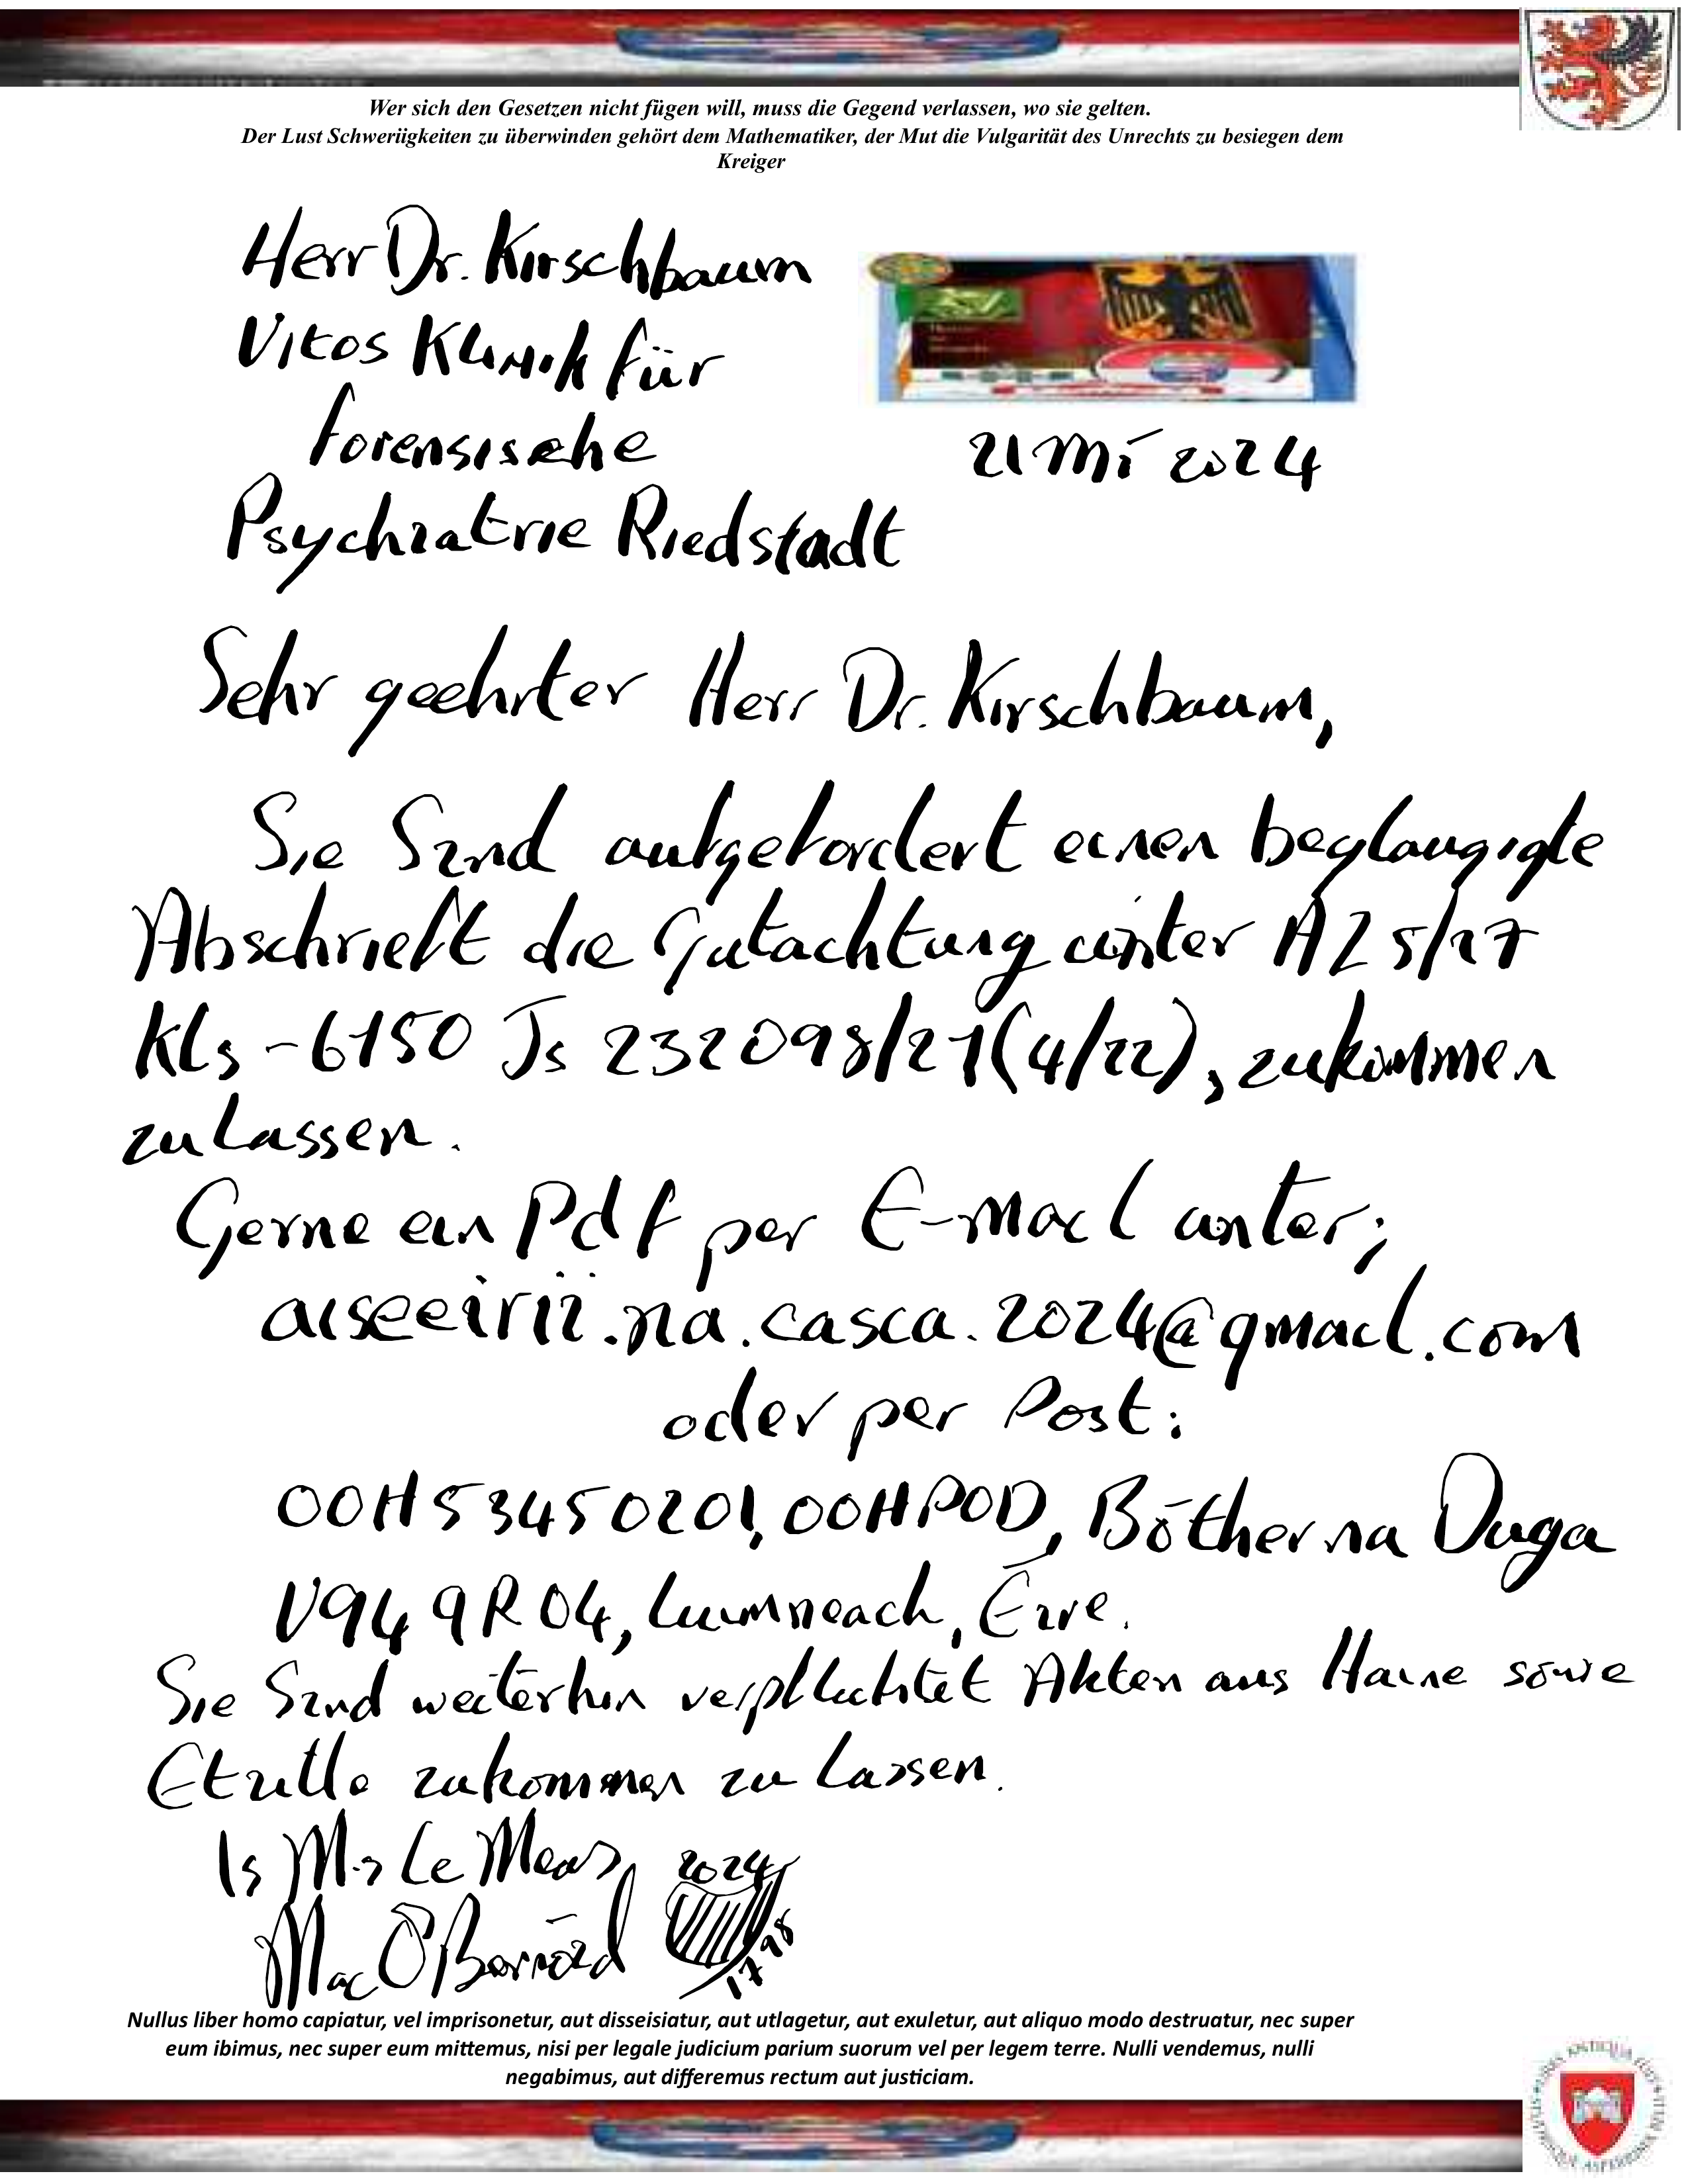 Wer sich den Gesetzen nicht fügen will, muss die Gegend verlassen, wo sie gelten.
Der Lust Schweriigkeiten zu überwinden gehört dem Mathematiker, der Mut die Vulgarität des Unrechts zu besiegen dem
Kreiger
Herr Dr. Kirschbaum
Vitos Klinik für
forensische
21 Mí 2024
Psychiatrie Riedstadt
Sehr geehrter Herr Dr. Kirschbaum,
Sie Sind aufgefordert einen beglaugigte
Abschrieft die Gutachtung unter AZ 5/27
Kls - 6150 Js 232098/21(4/22), zukommen
zu lassen.
Gerne ein Pdf per E-Mail unter;
aiseeirii.na.casca.2024@gmail.com
oder per Post:
00H53450201, 00HPOD, Bóther na Duga
V94 9R04, Luimneach, Éire.
Sie Sind weiterhin verpflichtet Akten aus Haine sowie
zukommen zu lassen.
Is Mis Le Meas,
2024
Mac Ó
1798
Nullus liber homo capiatur, vel imprisonetur, aut disseisiatur, aut utlagetur, aut exuletur, aut aliquo modo destruatur, nec super
eum ibimus, nec super eum mittemus, nisi per legale judicium parium suorum vel per legem terre. Nulli vendemus, nulli
negabimus, aut differemus rectum aut justiciam.